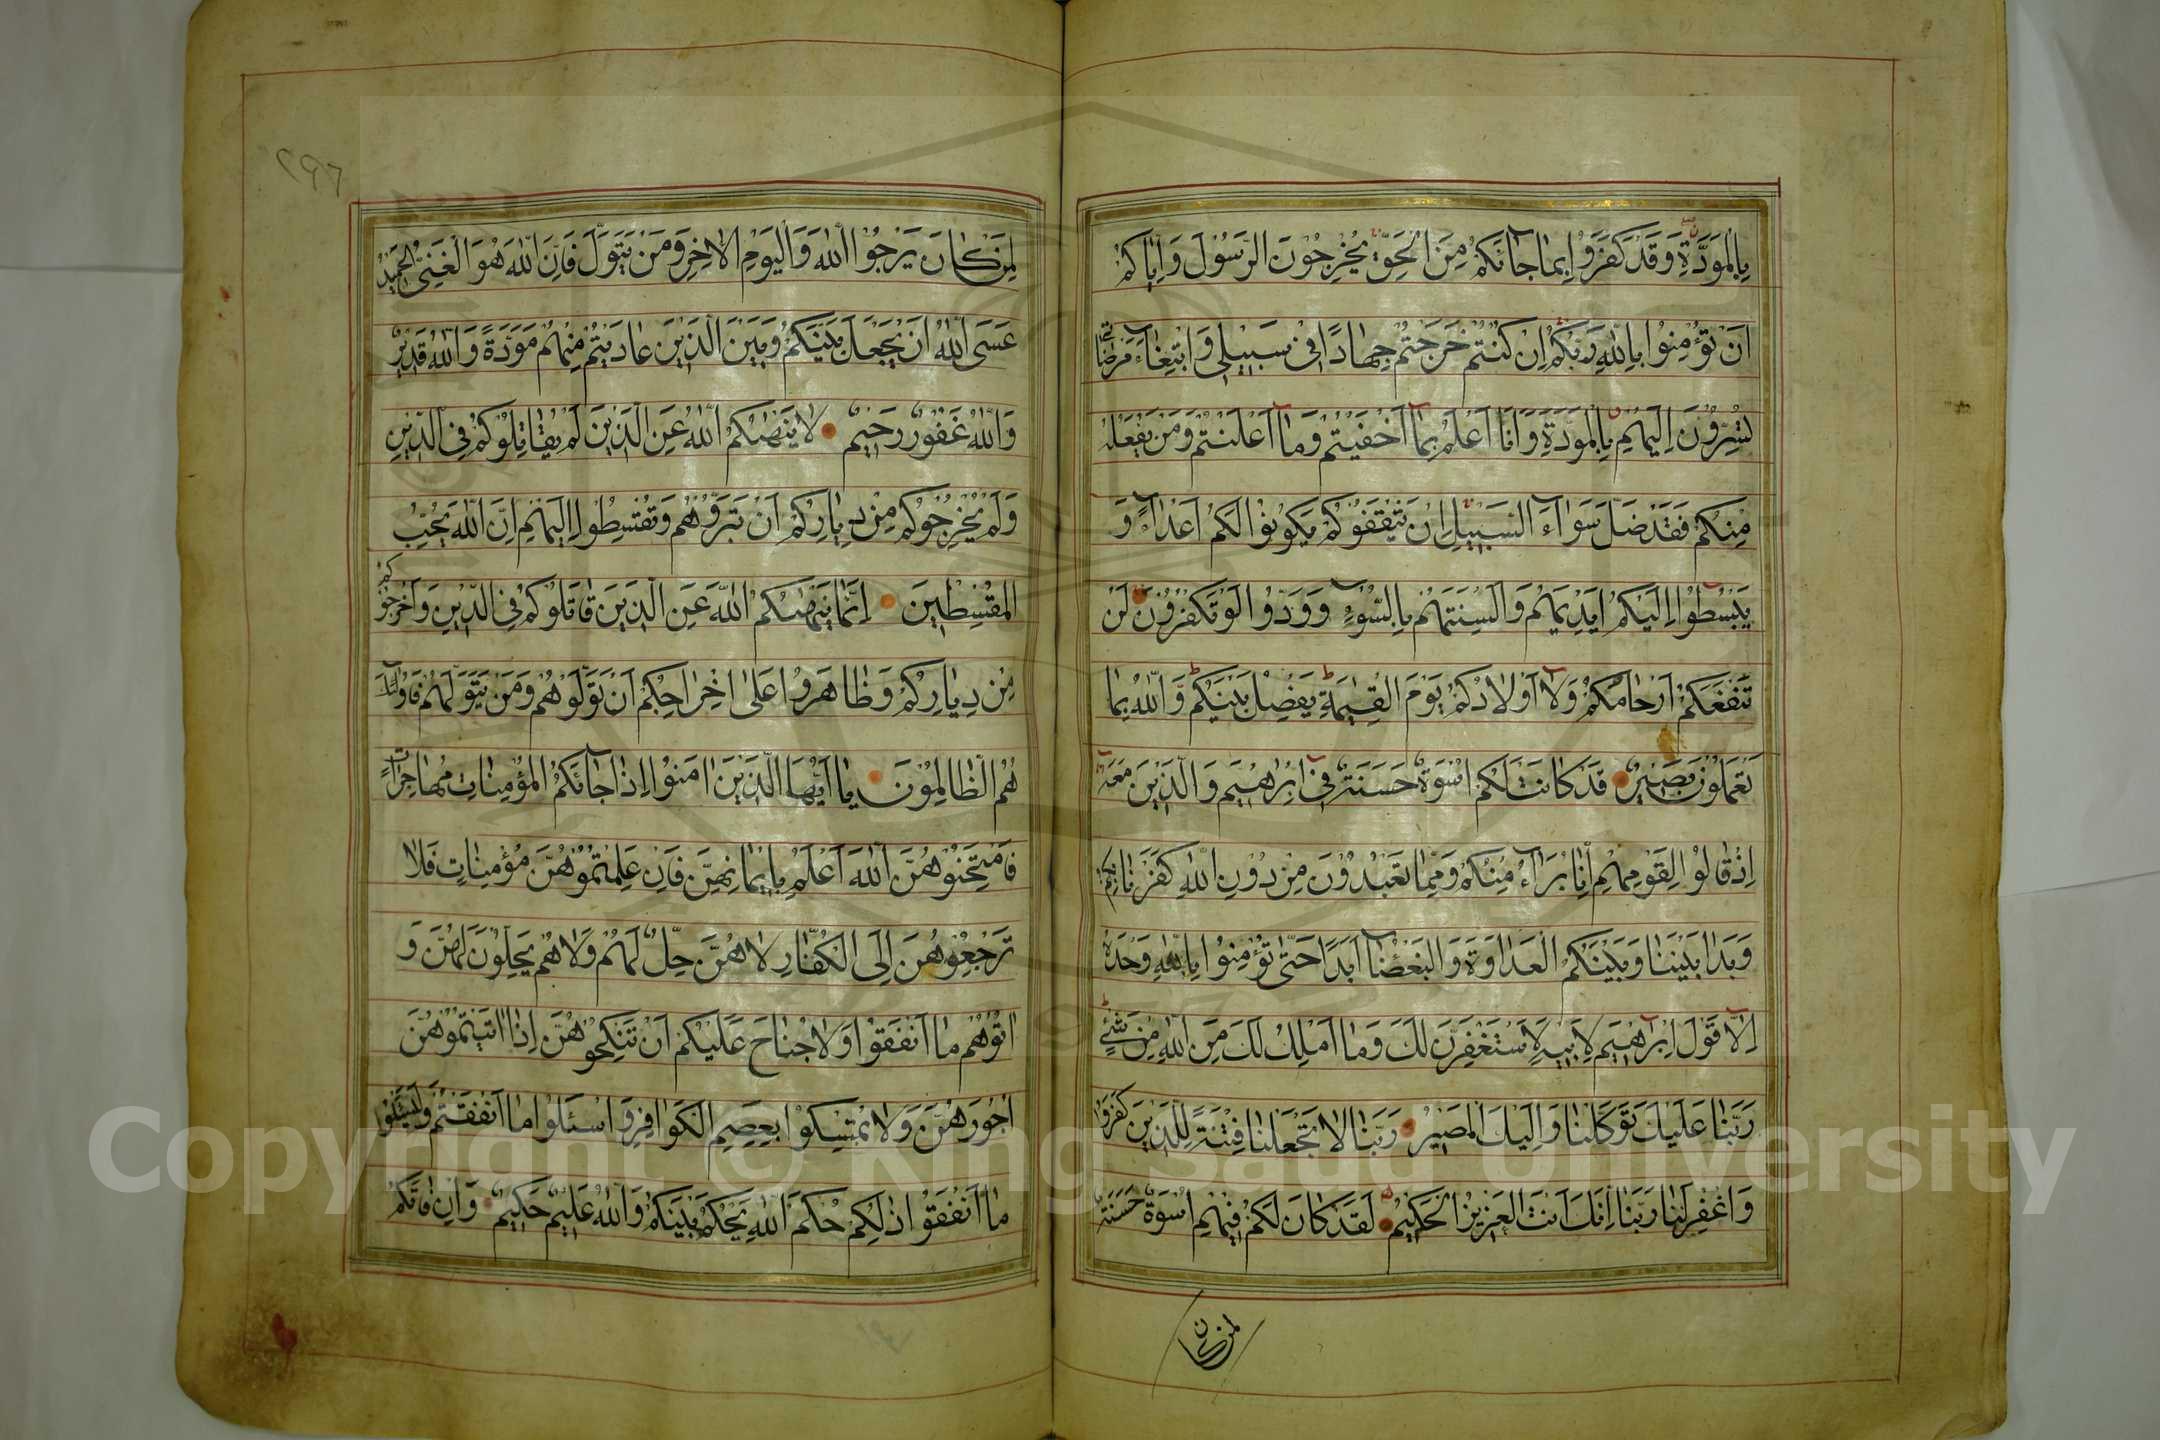 بِالْمَوَدَّةِ وَقَدْ كَفَرُوا بِمَا جَآئَكُمْ مِنَ الْحَقِّ يُخْرِجُونَ الرَّسُولَ وَاِيَّاكُمْ
اَنْ تُؤْمِنُوا بِاللّٰهِ رَبِّكُمْ اِنْ كُنْتُمْ خَرَجْتُمْ جِهَادًا فِى سَبِيلِى وَابْتِغَاءَ مَرْضَاتِى
تُسِرُّونَ اِلَيْهِمْ بِالْمَوَدَّةِ وَاَنَا اَعْلَمُ بِمَا اَخْفَيْتُمْ وَمَا اَعْلَنْتُمْ وَمَنْ يَفْعَلْهُ
مِنْكُمْ فَقَدْ ضَلَّ سَوَاءَ السَّبِيلِ اِنْ يَثْقَفُوكُمْ يَكُونُوا لَكُمْ اَعْدَاءً وَ
يَبْسُطُوا اِلَيْكُمْ اَيْدِيَهُمْ وَاَلْسِنَتَهُمْ بِالسُّوءِ وَوَدُّوا لَوْ تَكْفُرُونَ لَنْ
تَنْفَعَكُمْ اَرْحَامُكُمْ وَلَا اَوْلَادُكُمْ يَوْمَ الْقِيٰمَةِ يَفْصِلُ بَيْنَكُمْ وَاللّٰهُ بِمَا
تَعْمَلُونَ بَصِيرٌ قَدْ كَانَتْ لَكُمْ اُسْوَةٌ حَسَنَةٌ فِى اِبْرٰهِيمَ وَالَّذِينَ مَعَهُ
اِذْ قَالُوا لِقَوْمِهِمْ اِنَّا بُرَآءُ مِنْكُمْ وَمِمَّا تَعْبُدُونَ مِنْ دُونِ اللّٰهِ كَفَرْنَا بِكُمْ
وَبَدَا بَيْنَنَا وَبَيْنَكُمُ الْعَدَاوَةُ وَالْبَغْضَاءُ اَبَدًا حَتّٰى تُؤْمِنُوا بِاللّٰهِ وَحْدَهُ
اِلَّا قَوْلَ اِبْرٰهِيمَ لِاَبِيهِ لَاَسْتَغْفِرَنَّ لَكَ وَمَا اَمْلِكُ لَكَ مِنَ اللّٰهِ مِنْ شَىْءٍ
رَبَّنَا عَلَيْكَ تَوَكَّلْنَا وَاِلَيْكَ الْمَصِيرُ رَبَّنَا لَا تَجْعَلْنَا فِتْنَةً لِلَّذِينَ كَفَرُوا
وَاغْفِرْ لَنَا رَبَّنَا اِنَّكَ اَنْتَ الْعَزِيزُ الْحَكِيمُ لَقَدْ كَانَ لَكُمْ فِيهِمْ اُسْوَةٌ حَسَنَةٌ
لمن كان
٢٩٦
لِمَنْ كَانَ يَرْجُوا اللّٰهَ وَالْيَوْمَ الْاٰخِرَ وَمَنْ يَتَوَلَّ فَاِنَّ اللّٰهَ هُوَ الْغَنِىُّ الْحَمِيدُ
عَسَى اللّٰهُ اَنْ يَجْعَلَ بَيْنَكُمْ وَبَيْنَ الَّذِينَ عَادَيْتُمْ مِنْهُمْ مَوَدَّةً وَاللّٰهُ قَدِيرٌ
وَاللّٰهُ غَفُورٌ رَحِيمٌ لَا يَنْهٰيكُمُ اللّٰهُ عَنِ الَّذِينَ لَمْ يُقَاتِلُوكُمْ فِى الدِّينِ
وَلَمْ يُخْرِجُوكُمْ مِنْ دِيَارِكُمْ اَنْ تَبَرُّوهُمْ وَتُقْسِطُوا اِلَيْهِمْ اِنَّ اللّٰهَ يُحِبُّ
الْمُقْسِطِينَ اِنَّمَا يَنْهٰيكُمُ اللّٰهُ عَنِ الَّذِينَ قَاتَلُوكُمْ فِى الدِّينِ وَاَخْرَجُوكُمْ
مِنْ دِيَارِكُمْ وَظَاهَرُوا عَلٰى اِخْرَاجِكُمْ اَنْ تَوَلَّوْهُمْ وَمَنْ يَتَوَلَّهُمْ فَاُولٰئِكَ
هُمُ الظَّالِمُونَ يَا اَيُّهَا الَّذِينَ اٰمَنُوا اِذَا جَائَكُمُ الْمُؤْمِنَاتُ مُهَاجِرَاتٍ
فَامْتَحِنُوهُنَّ اَللّٰهُ اَعْلَمُ بِاِيمَانِهِنَّ فَاِنْ عَلِمْتُمُوهُنَّ مُؤْمِنَاتٍ فَلَا
تَرْجِعُوهُنَّ اِلَى الْكُفَّارِ لَا هُنَّ حِلٌّ لَهُمْ وَلَا هُمْ يَحِلُّونَ لَهُنَّ وَ
اٰتُوهُمْ مَا اَنْفَقُوا وَلَا جُنَاحَ عَلَيْكُمْ اَنْ تَنْكِحُوهُنَّ اِذَا اٰتَيْتُمُوهُنَّ
اُجُورَهُنَّ وَلَا تُمْسِكُوا بِعِصَمِ الْكَوَافِرِ وَاسْئَلُوا مَا اَنْفَقْتُمْ وَلْيَسْئَلُوا
مَا اَنْفَقُوا ذٰلِكُمْ حُكْمُ اللّٰهِ يَحْكُمُ بَيْنَكُمْ وَاللّٰهُ عَلِيمٌ حَكِيمٌ وَاِنْ فَاتَكُمْ
Copyright © King Saud University